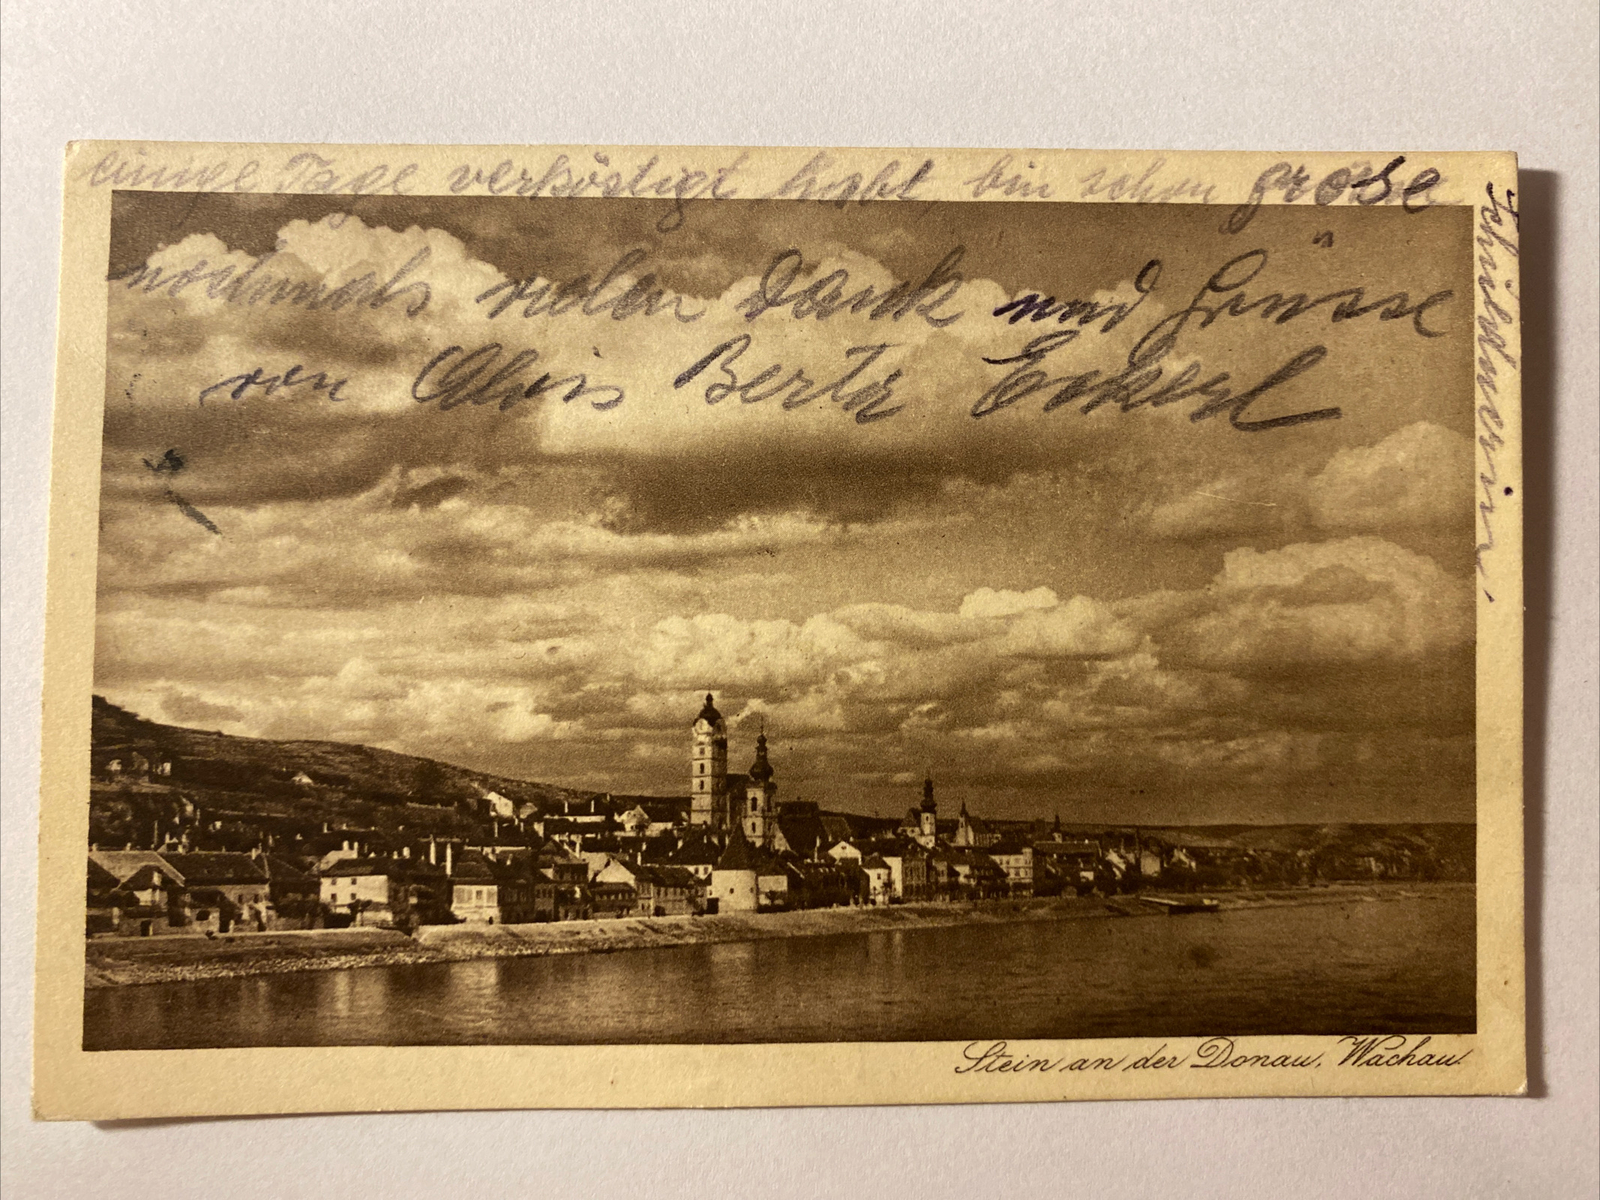 einige Tage verköstigt habt, bin schon große
Schuldnerin,
nochmals vielen Dank und Grüsse
von Alois Berta
Stein an der Donau, Wachau.